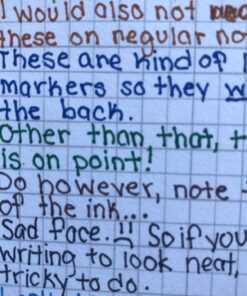 I would also not
these on regular no
These are kind of
markers so they w
the back.
Other than that, t
is on point!
Do however, note
of the ink...
Sad face. So if you
writing to look neat,
tricky to do.